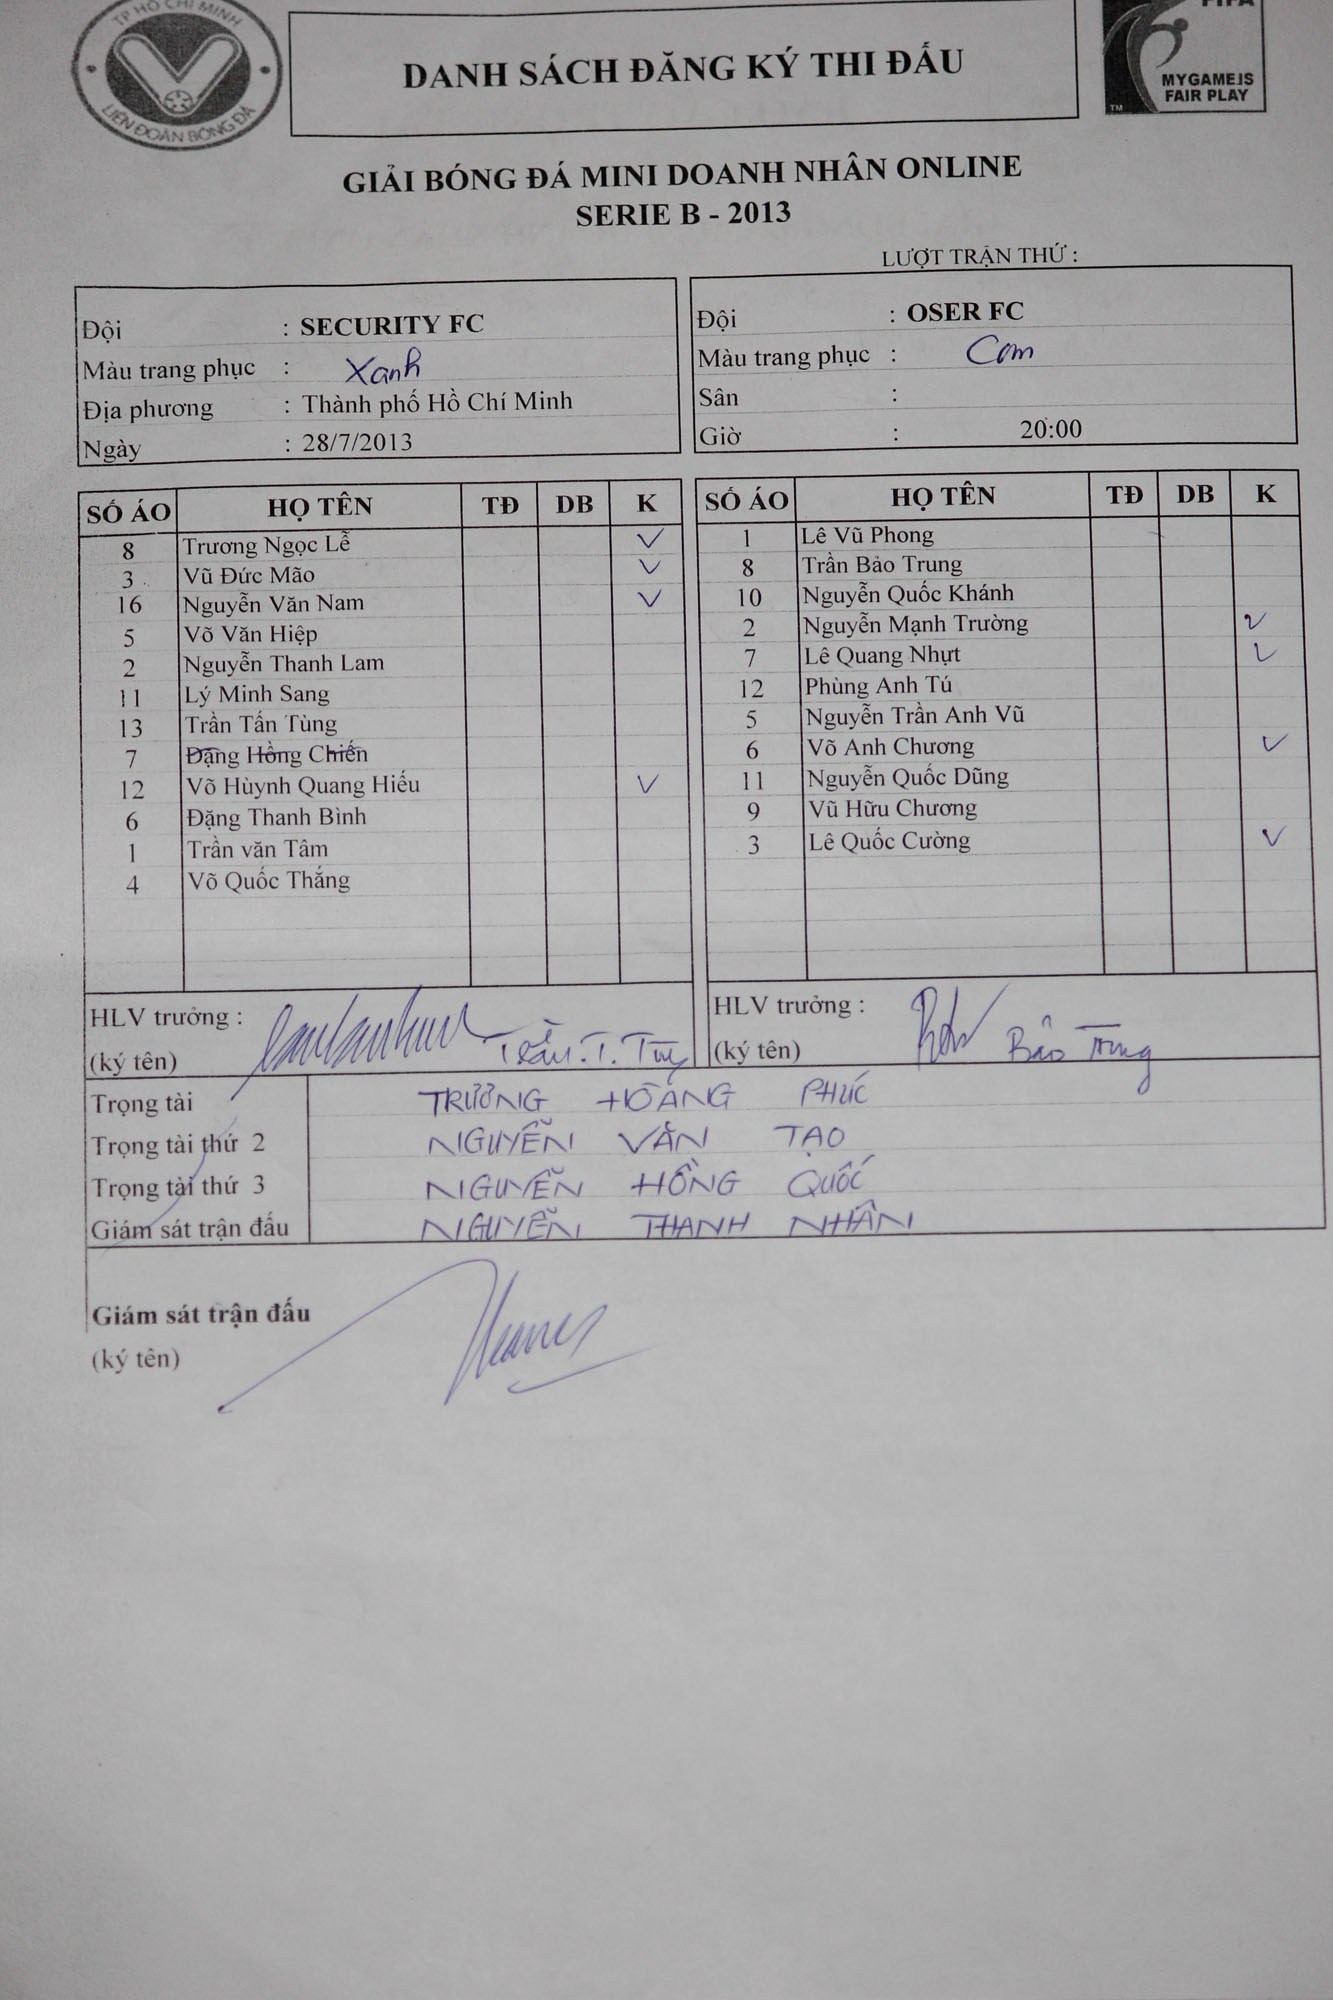 TP HỒ CHÍ MINH
LIÊN ĐOÀN BÓNG ĐÁ
DANH SÁCH ĐĂNG KÝ THI ĐẤU
FIFA
MYGAMEIS
FAIR PLAY
TM
GIẢI BÓNG ĐÁ MINI DOANH NHÂN ONLINE
SERIE B - 2013
LƯỢT TRẬN THỨ :
Đội : SECURITY FC
Màu trang phục : Xanh
Địa phương : Thành phố Hồ Chí Minh
Ngày : 28/7/2013
Đội : OSER FC
Màu trang phục : Cam
Sân :
Giờ : 20:00
SỐ ÁO HỌ TÊN TĐ DB K
8 Trương Ngọc Lễ V
3 Vũ Đức Mão V
16 Nguyễn Văn Nam V
5 Võ Văn Hiệp
2 Nguyễn Thanh Lam
11 Lý Minh Sang
13 Trần Tấn Tùng
7 Đặng Hồng Chiến
12 Võ Hùynh Quang Hiếu V
6 Đặng Thanh Bình
1 Trần văn Tâm
4 Võ Quốc Thắng
SỐ ÁO HỌ TÊN TĐ DB K
1 Lê Vũ Phong
8 Trần Bảo Trung
10 Nguyễn Quốc Khánh
2 Nguyễn Mạnh Trường V
7 Lê Quang Nhựt V
12 Phùng Anh Tú
5 Nguyễn Trần Anh Vũ
6 Võ Anh Chương V
11 Nguyễn Quốc Dũng
9 Vũ Hữu Chương
3 Lê Quốc Cường V
HLV trưởng :
(ký tên) Trần.T.Tùng
HLV trưởng :
(ký tên) Bảo Trung
Trọng tài TRƯƠNG HOÀNG PHÚC
Trọng tài thứ 2 NGUYỄN VĂN TẠO
Trọng tài thứ 3 NGUYỄN HỒNG QUỐC
Giám sát trận đấu NGUYỄN THANH NHÂN
Giám sát trận đấu
(ký tên)